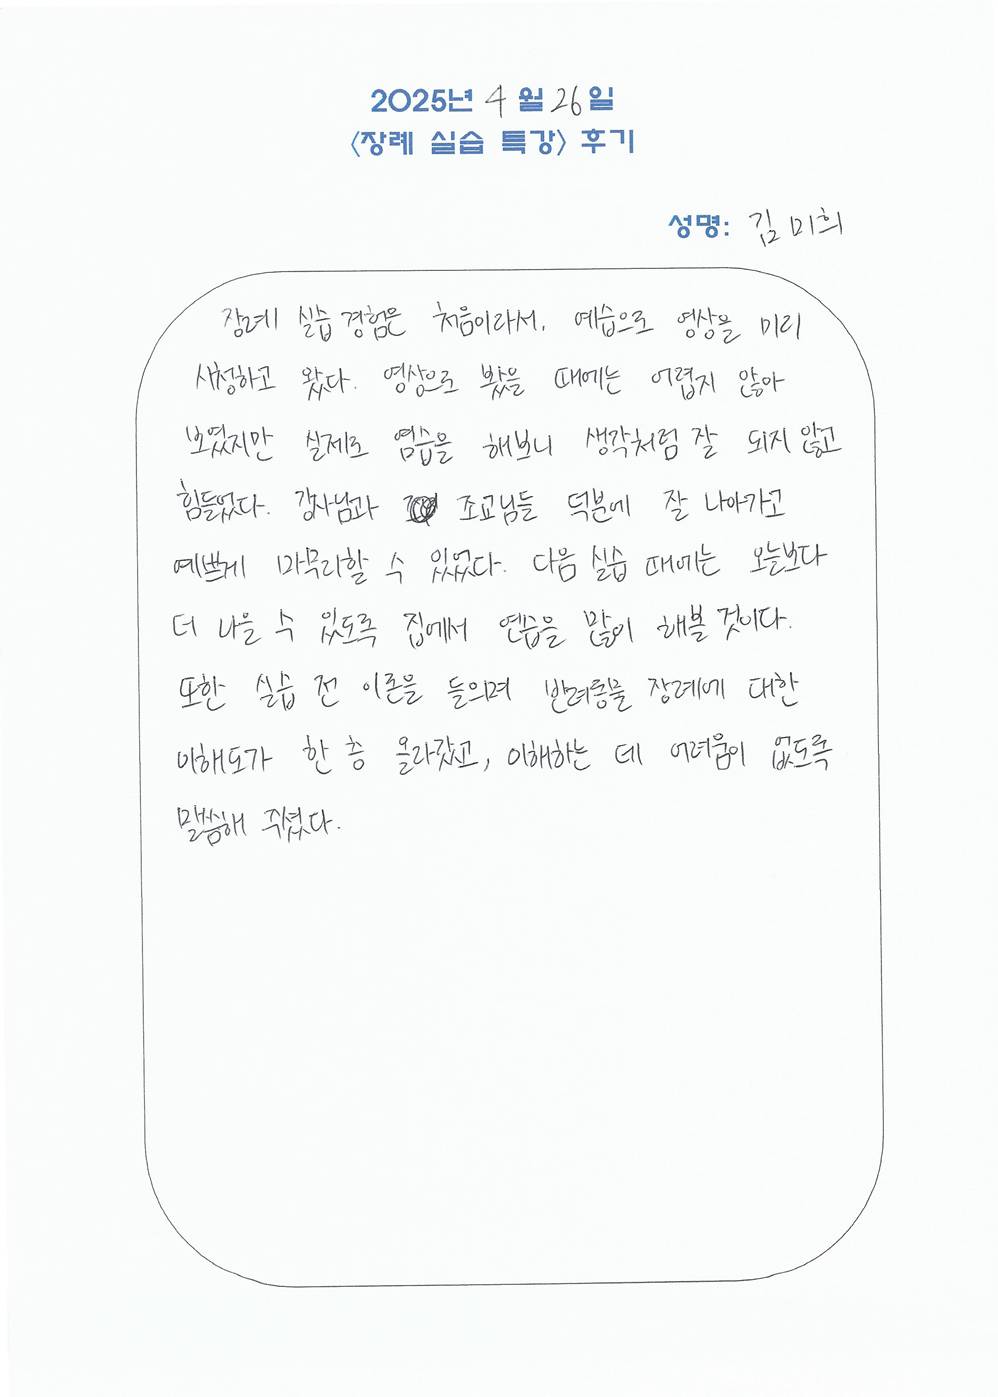 2025년 4월 26일
<장례 실습 특강> 후기
성명: 김미희
장례 실습 경험은 처음이라서, 예습으로 영상을 미리
시청하고 왔다. 영상으로 봤을 때에는 어렵지 않아
보였지만 실제로 염습을 해보니 생각처럼 잘 되지 않고
힘들었다. 강사님과 조교님들 덕분에 잘 나아가고
예쁘게 마무리할 수 있었다. 다음 실습 때에는 오늘보다
더 나을 수 있도록 집에서 연습을 많이 해볼 것이다.
또한 실습 전 이론을 들으며 반려동물 장례에 대한
이해도가 한 층 올라갔고, 이해하는 데 어려움이 없도록
말씀해 주셨다.